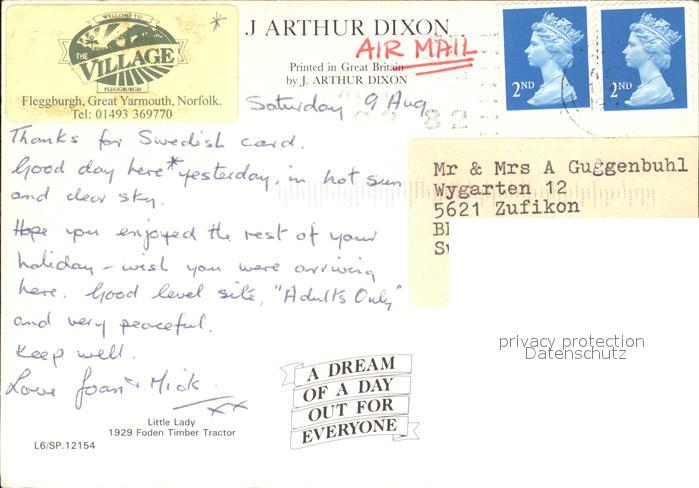 WELCOME TO
THE VILLAGE
FLEGGBURGH
*
Fleggburgh, Great Yarmouth, Norfolk.
Tel: 01493 369770
J ARTHUR DIXON
AIR MAIL
Printed in Great Britain
by J. ARTHUR DIXON
2ND
2ND
Saturday 9 Aug
Thanks for Swedish card.
Good day here * yesterday, in hot sun
and clear sky.
Hope you enjoyed the rest of your
holiday - wish you were arriving
here. Good level site, "Adults Only"
and very peaceful.
Keep well.
Love Joan & Mick.
xx
Mr & Mrs A Guggenbuhl
Wygarten 12
5621 Zufikon
privacy protection
Datenschutz
A DREAM
OF A DAY
OUT FOR
EVERYONE
Little Lady
1929 Foden Timber Tractor
L6/SP.12154